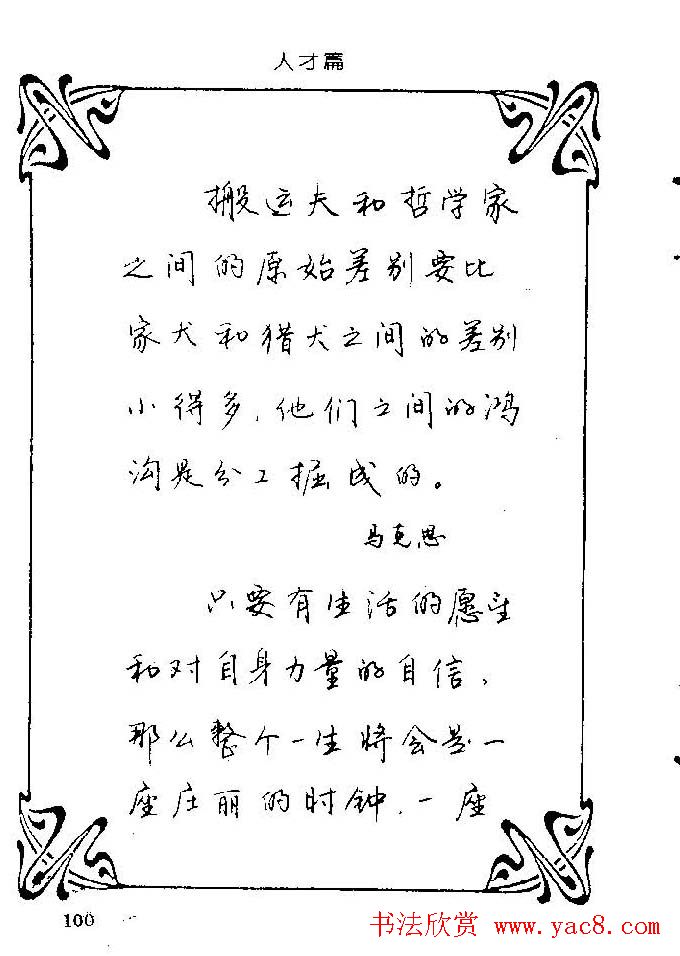 人才篇
搬运夫和哲学家
之间的原始差别要比
家犬和猎犬之间的差别
小得多，他们之间的鸿
沟是分工掘成的。
马克思
只要有生活的愿望
和对自身力量的自信，
那么整个一生将会是一
座庄丽的时钟，一座
100
书法欣赏 www.yac8.com